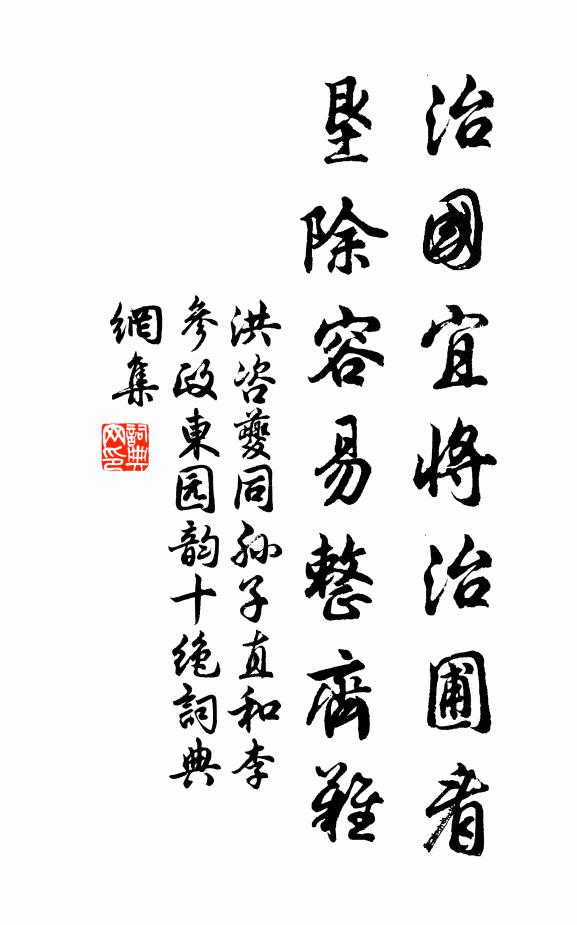 治國宜將治圃看
墾除容易整齊難
洪咨夔同孙子直和李
參政東园韵十绝詞典
網集
詞典網印